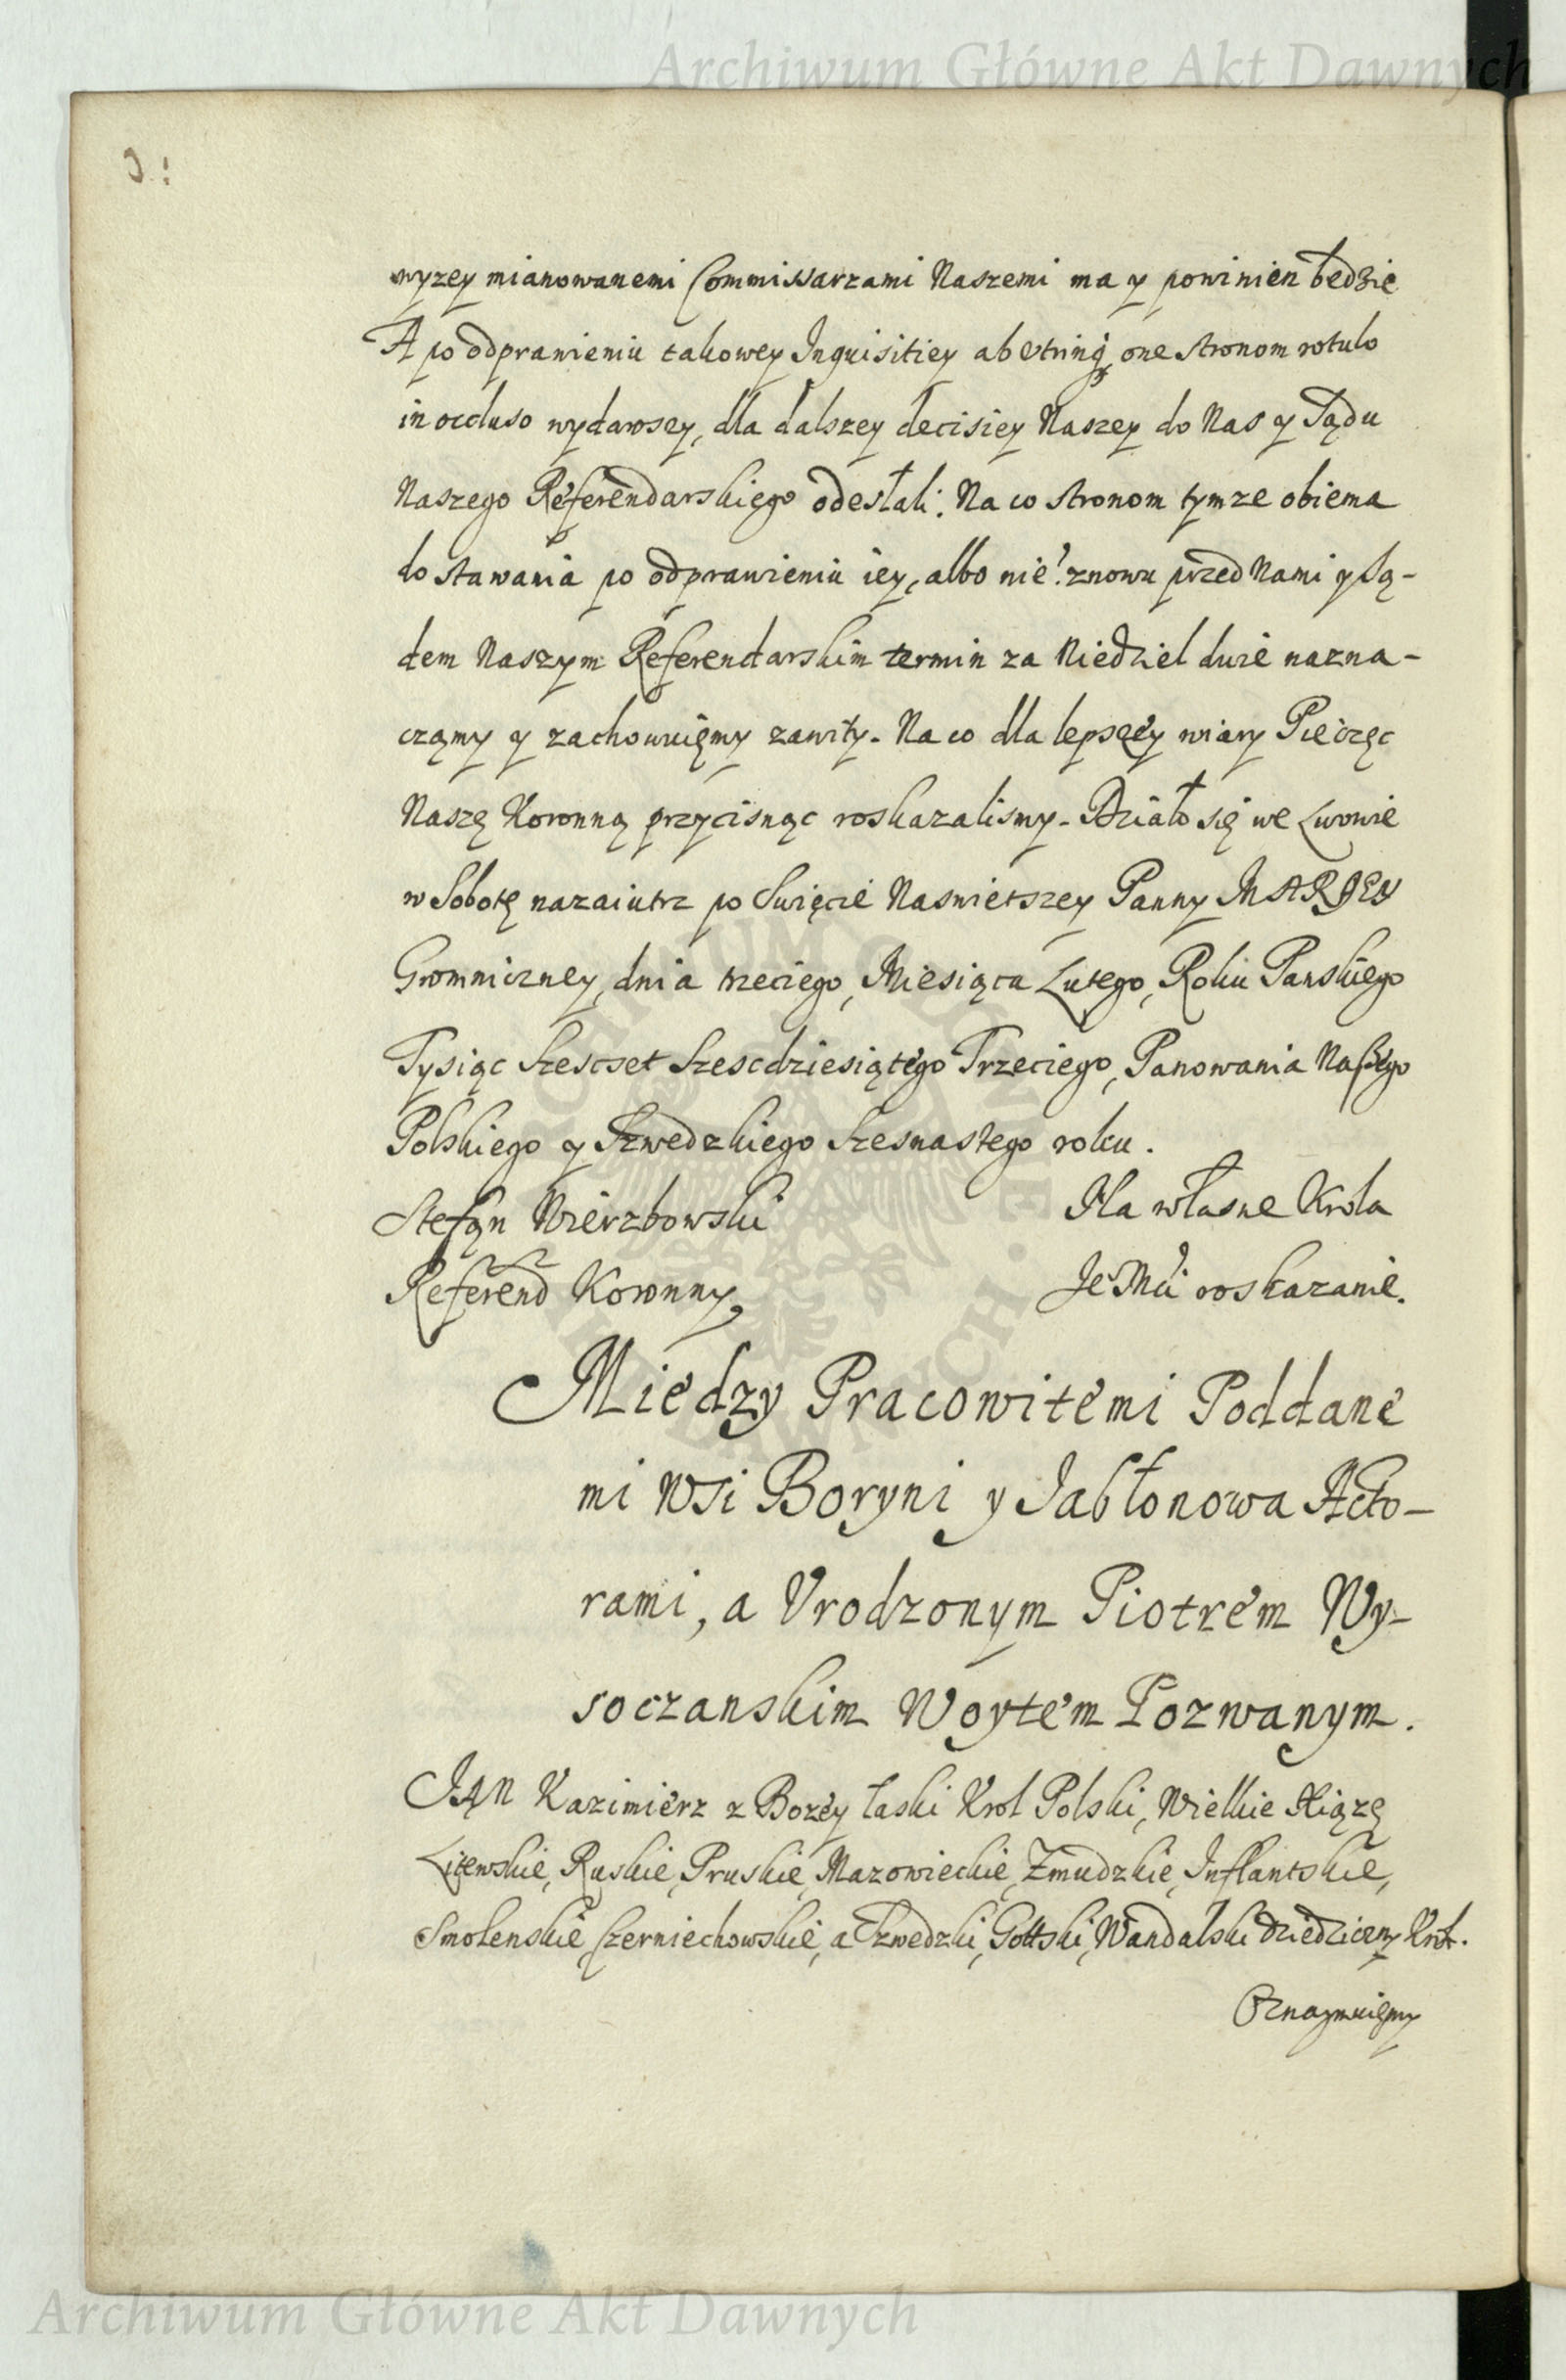 Archiwum Główne Akt Dawnych
wyzey mianowanemi Commissarzami Naszemi ma y powinien będzie
A po odprawieniu takowey Inquisitiey ab utrinq, one stronom rotulo
in occluso wydawsey, dla dalszey decisiey Naszey do Nas y Sądu
Naszego Referendarskiego odesłali: Na co stronom tymze obiema
do stawania po odprawieniu iey, albo nie? znowu przed Nami y Są-
dem Naszym Referendarskim termin za Niedziel dwie nazna-
czamy y zachowuięmy zawity. Na co dla lepszey wiary Pieczęc
Naszę Koronną przycisnąc roskazalismy. Działo się we Lwowie
w Sobotę nazaiutrz po Swięcie Naswietszey Panny MARYEY
Gromniczney, dnia trzeciego, Miesiąca Lutego, Roku Panskiego
Tysiąc Szescset Szescdziesiątego Trzeciego, Panowania Naszego
Polskiego y Szwedzkiego Szesnastego roku.
Stefan Wierzbowski Na własne Krola
Referend Koronny Je Mci roskazanie.
Miedzy Pracowitemi Poddane
mi Wsi Boryni y Jabłonowa Acto-
rami, a Vrodzonym Piotrem Wy-
soczanskim Woytem Pozwanym.
JAN Kazimierz z Bozey łaski Krol Polski, Wielkie Xiązę
Litewskie, Ruskie, Pruskie, Mazowieckie, Zmudzkie, Inflantskie,
Smolenskie, Czerniechowskie, a Szwedzki, Gottski, Wandalski dziedziczny Krol.
Oznaymuięmy
Archiwum Główne Akt Dawnych